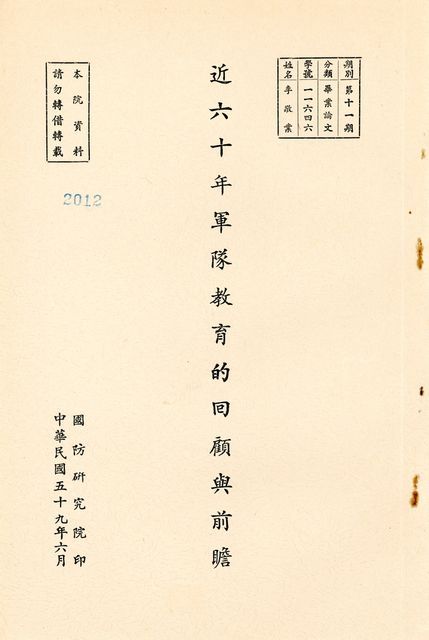 期別 第十一期
分類 畢業論文
學號 一一六四六
姓名 李啟業
近六十年軍隊教育的回顧與前瞻
本院資料
請勿轉借轉載
2012
國防研究院印
中華民國五十九年六月